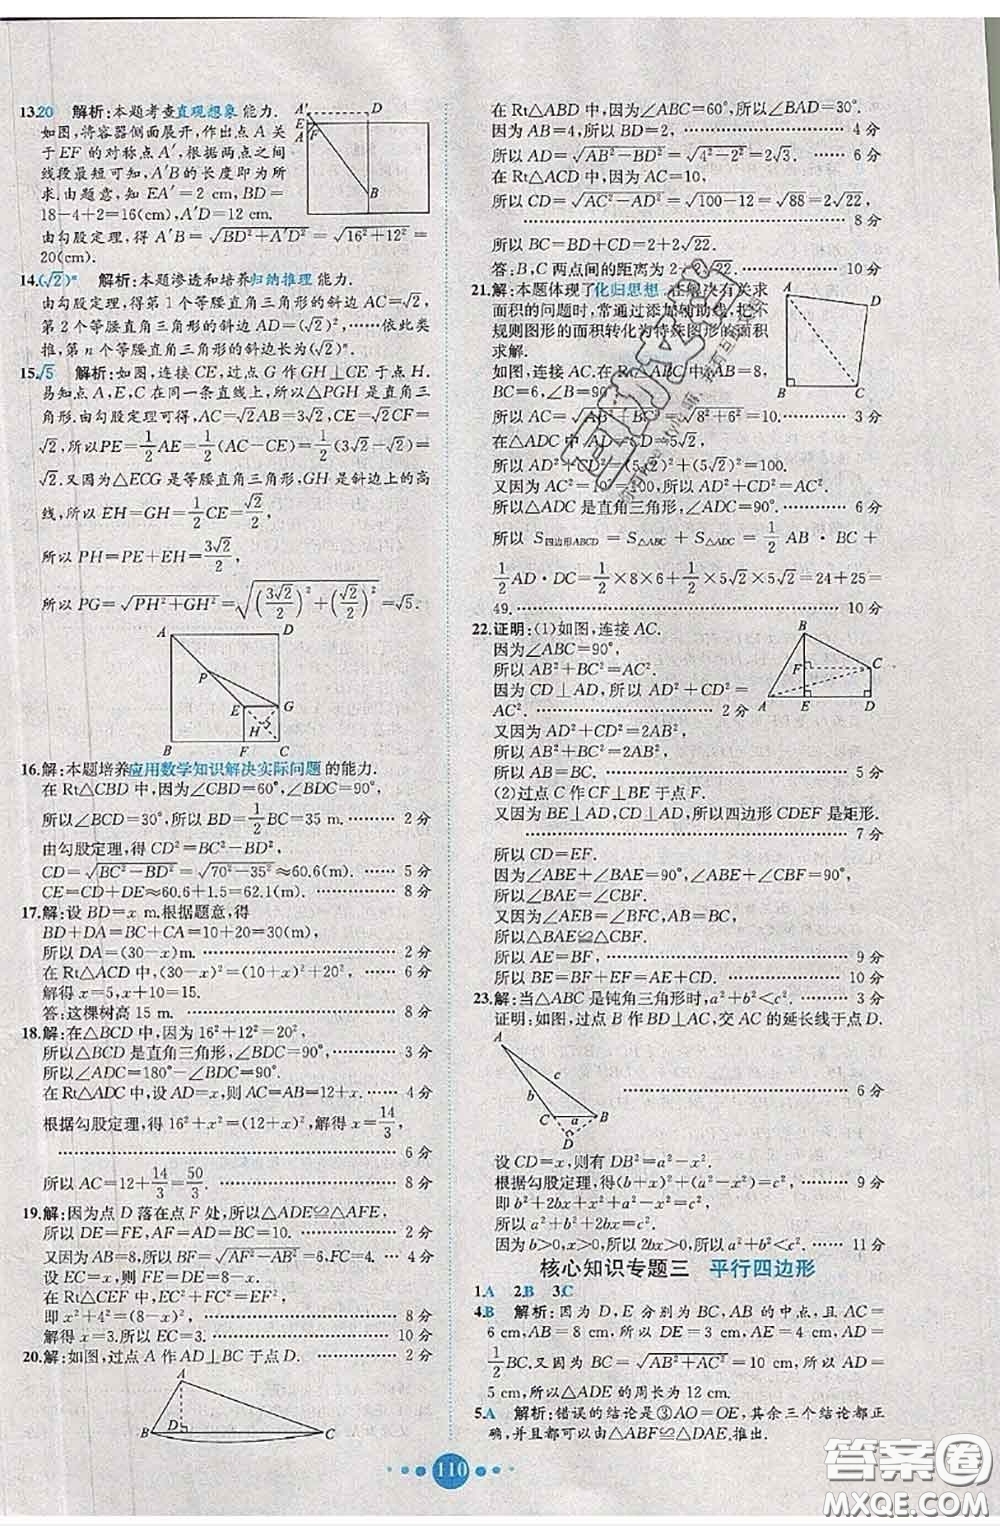 13.20　解析:本题考查直观想象能力.
如图,将容器侧面展开,作出点 A 关
于 EF 的对称点 A′,根据两点之间
线段最短可知,A′B 的长度即为所
求.由题意,知 EA′=2 cm,BD=
18-4+2=16(cm),A′D=12 cm.
由勾股定理,得 A′B=√(BD²+A′D²)=√(16²+12²)=
20(cm).
A′ D
E F
A
B
14.(√2)ⁿ　解析:本题渗透和培养归纳推理能力.
由勾股定理,得第 1 个等腰直角三角形的斜边 AC=√2,
第 2 个等腰直角三角形的斜边 AD=(√2)²,……依此类
推,第 n 个等腰直角三角形的斜边长为(√2)ⁿ.
15.√5　解析:如图,连接 CE,过点 G 作 GH⊥CE 于点 H.
易知点 A,E,C 在同一条直线上,所以△PGH 是直角三
角形.由勾股定理可得,AC=√2AB=3√2,CE=√2CF=
√2,所以PE=1/2AE=1/2(AC-CE)=1/2(3√2-√2)=
√2.又因为△ECG 是等腰直角三角形,GH是斜边上的高
线,所以 EH=GH=1/2CE=√2/2,
所以 PH=PE+EH=3√2/2.
所以 PG=√(PH²+GH²)=√((3√2/2)²+(√2/2)²)=√5.
A D
P
E G
H
B F C
16.解:本题培养应用数学知识解决实际问题的能力.
在 Rt△CBD 中,因为∠CBD=60°,∠BDC=90°,
所以∠BCD=30°,所以 BD=1/2BC=35 m. ………… 2 分
由勾股定理,得 CD²=BC²-BD²,
CD=√(BC²-BD²)=√(70²-35²)≈60.6(m). ……… 5 分
CE=CD+DE≈60.6+1.5≈62.1(m). ………… 8 分
17.解:设 BD=x m.根据题意,得
BD+DA=BC+CA=10+20=30(m),
所以 DA=(30-x)m. ………… 2 分
在 Rt△ACD 中,(30-x)²=(10+x)²+20². ……… 6 分
解得 x=5,x+10=15.
答:这棵树高 15 m. ………… 8 分
18.解:在△BCD 中,因为 16²+12²=20²,
所以△BCD 是直角三角形,∠BDC=90°, ………… 3 分
所以∠ADC=180°-∠BDC=90°.
在 Rt△ADC 中,设 AD=x,则 AC=AB=12+x, … 4 分
根据勾股定理,得 16²+x²=(12+x)²,解得 x=14/3,
………… 6 分
所以 AC=12+14/3=50/3. ………… 8 分
19.解:因为点 D 落在点 F 处,所以△ADE≌△AFE,
所以 DE=FE,AF=AD=BC=10. ………… 2 分
又因为 AB=8,所以 BF=√(AF²-AB²)=6,FC=4. … 4 分
设 EC=x,则 DE=FE=8-x.
在 Rt△CEF 中,EC²+FC²=FE²,
即 x²+4²=(8-x)². ………… 8 分
解得 x=3.所以 EC=3. ………… 10 分
20.解:如图,过点 A 作 AD⊥BC 于点 D. ………… 2 分
A
D
B C
在 Rt△ABD 中,因为∠ABC=60°,所以∠BAD=30°.
因为 AB=4,所以 BD=2. ………… 4 分
所以 AD=√(AB²-BD²)=√(4²-2²)=2√3. …… 6 分
在 Rt△ADC 中,因为 AC=10,
所以 CD=√(AC²-AD²)=√(100-12)=√88=2√22,
………… 8 分
所以 BC=BD+CD=2+2√22.
答:B,C 两点间的距离为 2+2√22. ………… 10 分
21.解:本题体现了化归思想.在解决有关求
面积的问题时,常通过添加辅助线,把不
规则图形的面积转化为特殊图形的面积
求解.
如图,连接 AC.在 Rt△ABC 中,AB=8,
BC=6,∠B=90°,
所以 AC=√(AB²+BC²)=√(8²+6²)=10. ……… 3 分
在△ADC 中,AD=CD=5√2,
所以 AD²+CD²=(5√2)²+(5√2)²=100.
又因为 AC²=10²=100,所以 AD²+CD²=AC².
所以△ADC 是直角三角形,∠ADC=90°. ………… 6 分
所以 S四边形ABCD = S△ABC + S△ADC = 1/2 AB · BC +
1/2AD·DC=1/2×8×6+1/2×5√2×5√2=24+25=
49. ………… 10 分
A D
B C
22.证明:(1)如图,连接 AC.
因为∠ABC=90°,
所以 AB²+BC²=AC².
因为 CD⊥AD,所以 AD²+CD²=
AC². ………… 2 分
又因为 AD²+CD²=2AB²,
所以 AB²+BC²=2AB²,
所以 AB=BC. ………… 5 分
(2)过点 C 作 CF⊥BE 于点 F.
又因为 BE⊥AD,CD⊥AD,所以四边形 CDEF 是矩形,
………… 7 分
所以 CD=EF.
因为∠ABE+∠BAE=90°,∠ABE+∠CBF=90°,
所以∠BAE=∠CBF.
又因为∠AEB=∠BFC,AB=BC,
所以△BAE≌△CBF.
所以 AE=BF, ………… 9 分
所以 BE=BF+EF=AE+CD. ………… 10 分
B
F C
A E D
23.解:当△ABC 是钝角三角形时,a²+b²<c². ……… 3 分
证明:如图,过点 B 作 BD⊥AC,交 AC 的延长线于点 D.
A
b c
C a B
D
………… 6 分
设 CD=x,则有 DB²=a²-x².
根据勾股定理,得(b+x)²+(a²-x²)=c², ……… 9 分
即 b²+2bx+x²+a²-x²=c².
所以 a²+b²+2bx=c².
因为 b>0,x>0,所以 2bx>0,所以 a²+b²<c². … 11 分
核心知识专题三　平行四边形
1.A　2.B　3.C
4.B　解析:因为 D,E 分别为 BC,AB 的中点,且 AC=
6 cm,AB=8 cm,所以 DE=3 cm,AE=4 cm,AD=
1/2BC.又因为 BC=√(AB²+AC²)=10 cm,所以 AD=
5 cm,所以△ADE 的周长为 12 cm.
5.A　解析:错误的结论是③AO=OE,其余三个结论都正
确,并且都可以由△ABF≌△DAE 推出.
110
答案圈
MXQE.COM